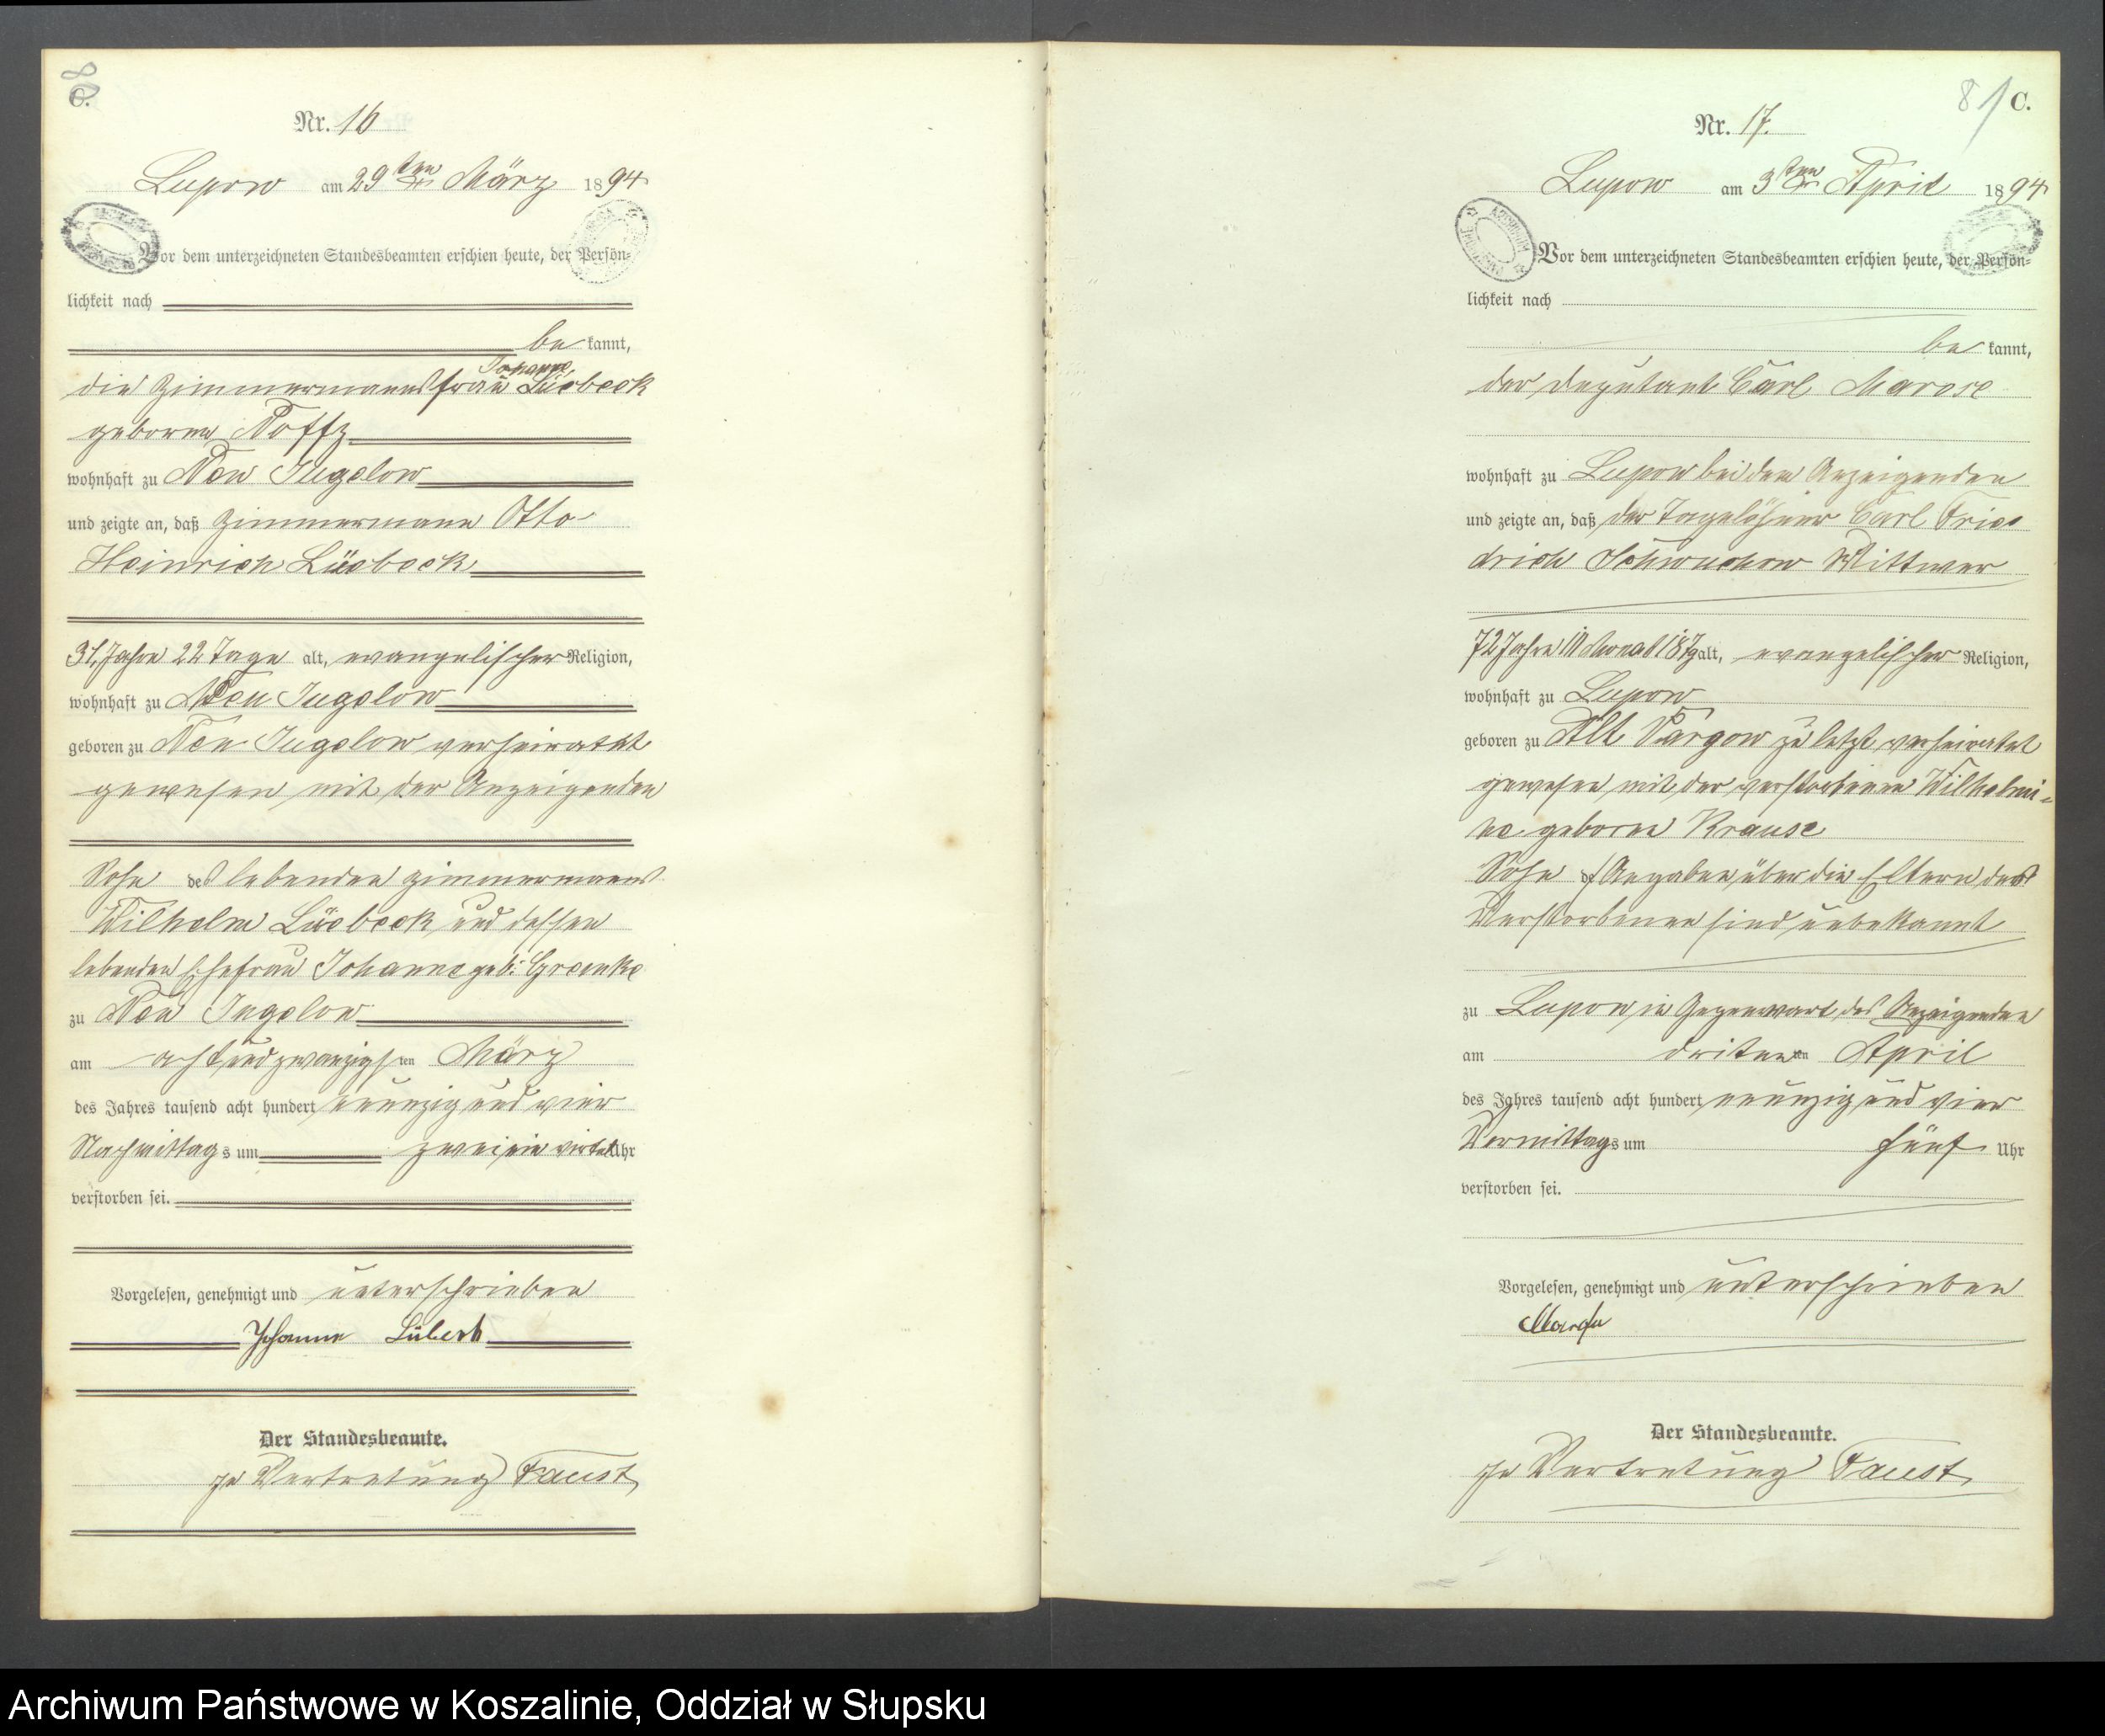 C.
Nr. 16
Lupow am 29ten März 1894
Vor dem unterzeichneten Standesbeamten erschien heute, der Persön-
lichkeit nach
be kannt,
Johanne
die Zimmermannsfrau Lüebeck
geborne Noffz
wohnhaft zu Neu Jugelow
und zeigte an, daß Zimmermann Otto
Heinrich Lüebeck
31 Jahre 22 Tage alt, evangelischer Religion,
wohnhaft zu Neu Jugelow
geboren zu Neu Jugelow verheirathet
gewesen mit der Anzeigenden
Sohn des lebenden Zimmermanns
Wilhelm Lüebeck und dessen
lebenden Ehefrau Johanne geb: Granke
zu Neu Jugelow
am achtundzwanzigsten März
des Jahres tausend acht hundert neunzig und vier
Nachmittags um zwei ein viertel Uhr
verstorben sei.
Vorgelesen, genehmigt und unterschrieben
Johanne Lübeck
Der Standesbeamte.
In Vertretung Faust
81 C.
Nr. 17.
Lupow am 3ten April 1894
Vor dem unterzeichneten Standesbeamten erschien heute, der Persön-
lichkeit nach
be kannt,
der Deputant Carl Marose
wohnhaft zu Lupow bei dem Anzeigenden
und zeigte an, daß der Tagelöhner Carl Frie
drich Schwuchow Wittwer
72 Jahre alt, evangelischer Religion,
wohnhaft zu Lupow
geboren zu Alt Vargow zu letzt verheiratet
gewesen mit der verstorbenen Wilhelmi-
ne geborne Krause
Sohn de Angaben über die Eltern des
Verstorbenen sind unbekannt
zu Lupow in Gegenwart des Anzeigenden
am dritten April
des Jahres tausend acht hundert neunzig und vier
Vormittags um fünf Uhr
verstorben sei.
Vorgelesen, genehmigt und unterschrieben
Der Standesbeamte.
In Vertretung Faust
Archiwum Państwowe w Koszalinie, Oddział w Słupsku